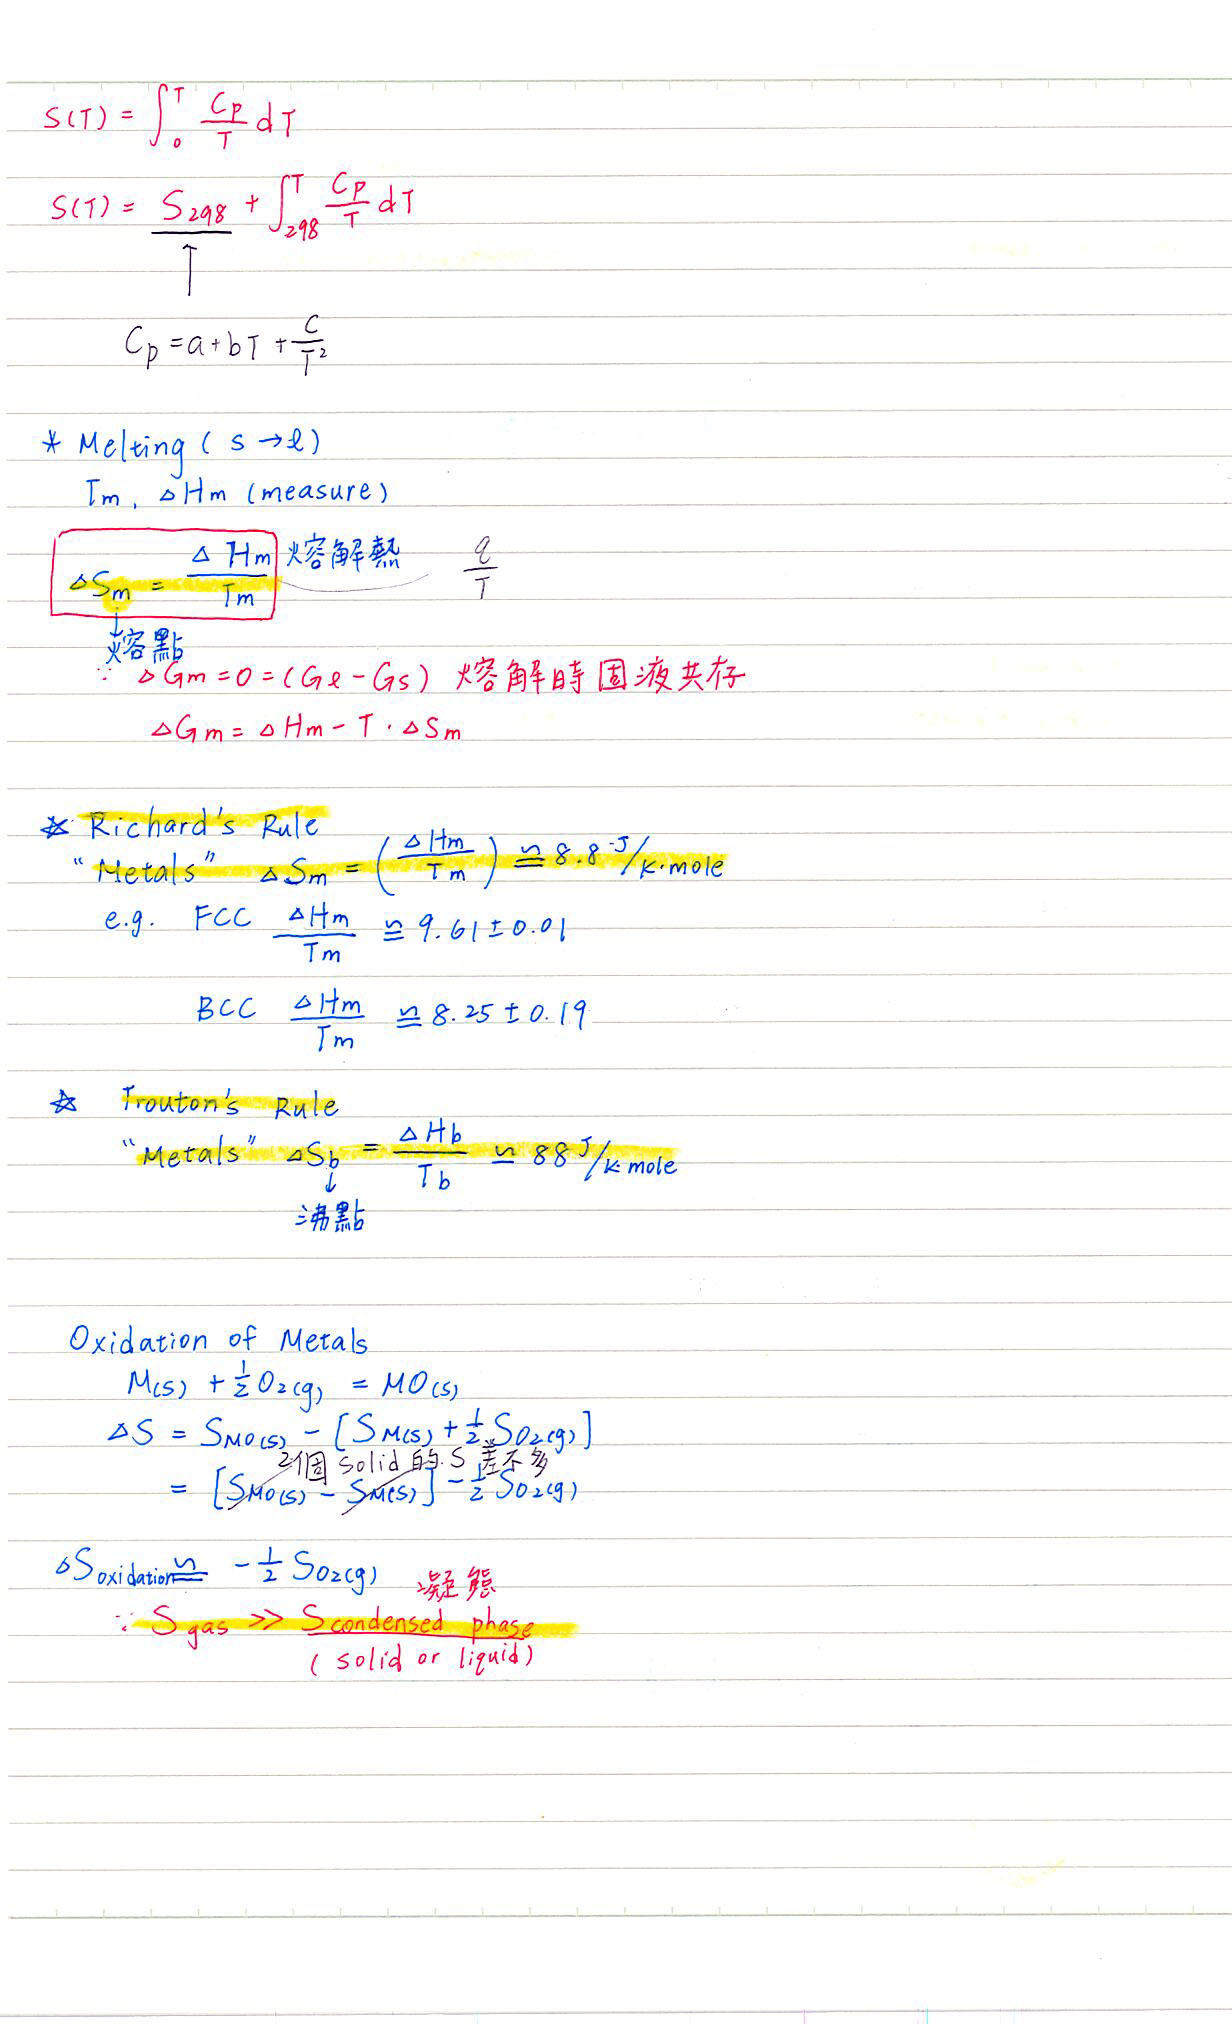 S(T) = ∫₀ᵀ Cp/T dT
S(T) = S₂₉₈ + ∫₂₉₈ᵀ Cp/T dT
↑
Cp = a + bT + C/T²
* Melting ( s → l )
Tm, △Hm (measure)
△Sm = △Hm/Tm 熔解熱 q/T
↓
熔點
∵ △Gm = 0 = (Gl - Gs) 熔解時固液共存
△Gm = △Hm - T · △Sm
☆ Richard's Rule
"Metals" △Sm = (△Hm/Tm) ≌ 8.8 J/K·mole
e.g. FCC △Hm/Tm ≌ 9.61 ± 0.01
BCC △Hm/Tm ≌ 8.25 ± 0.19
☆ Trouton's Rule
"Metals" △Sb = △Hb/Tb ≌ 88 J/K·mole
↓
沸點
Oxidation of Metals
M(s) + ½ O₂(g) = MO(s)
△S = S MO(s) - [S M(s) + ½ S O₂(g)]
2個 solid 的 S 差不多
= [S MO(s) - S M(s)] - ½ S O₂(g)
△S oxidation ≌ - ½ S O₂(g) 凝態
∵ S gas >> S condensed phase
( solid or liquid)